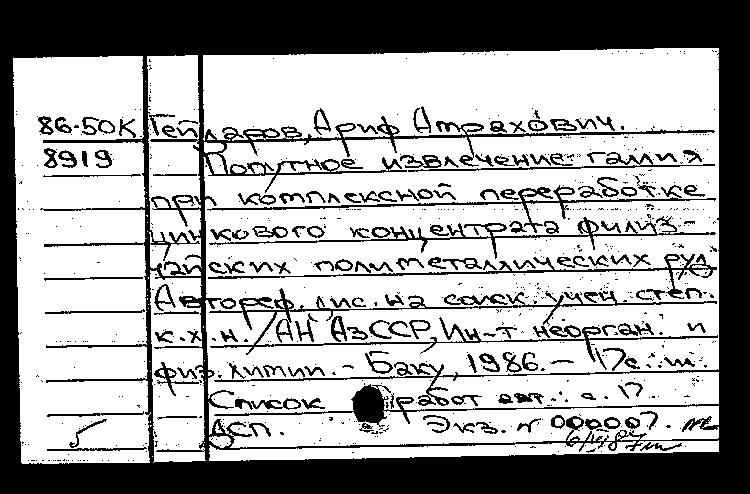 86-50К Гейдаров, Ариф Атрахович.
8919 Попутное извлечение галия
при комплексной переработке
цинкового концентрата филиз-
чайских полиметаллических руд
Автореф. дис. на соиск. учен. степ.
к.х.н. /АН АзССР, Ин-т неорган. и
физ. химии. - Баку, 1986. - 17с.: ил.
Список работ авт.: с. 17
5 ДСП. Экз. № 000007.